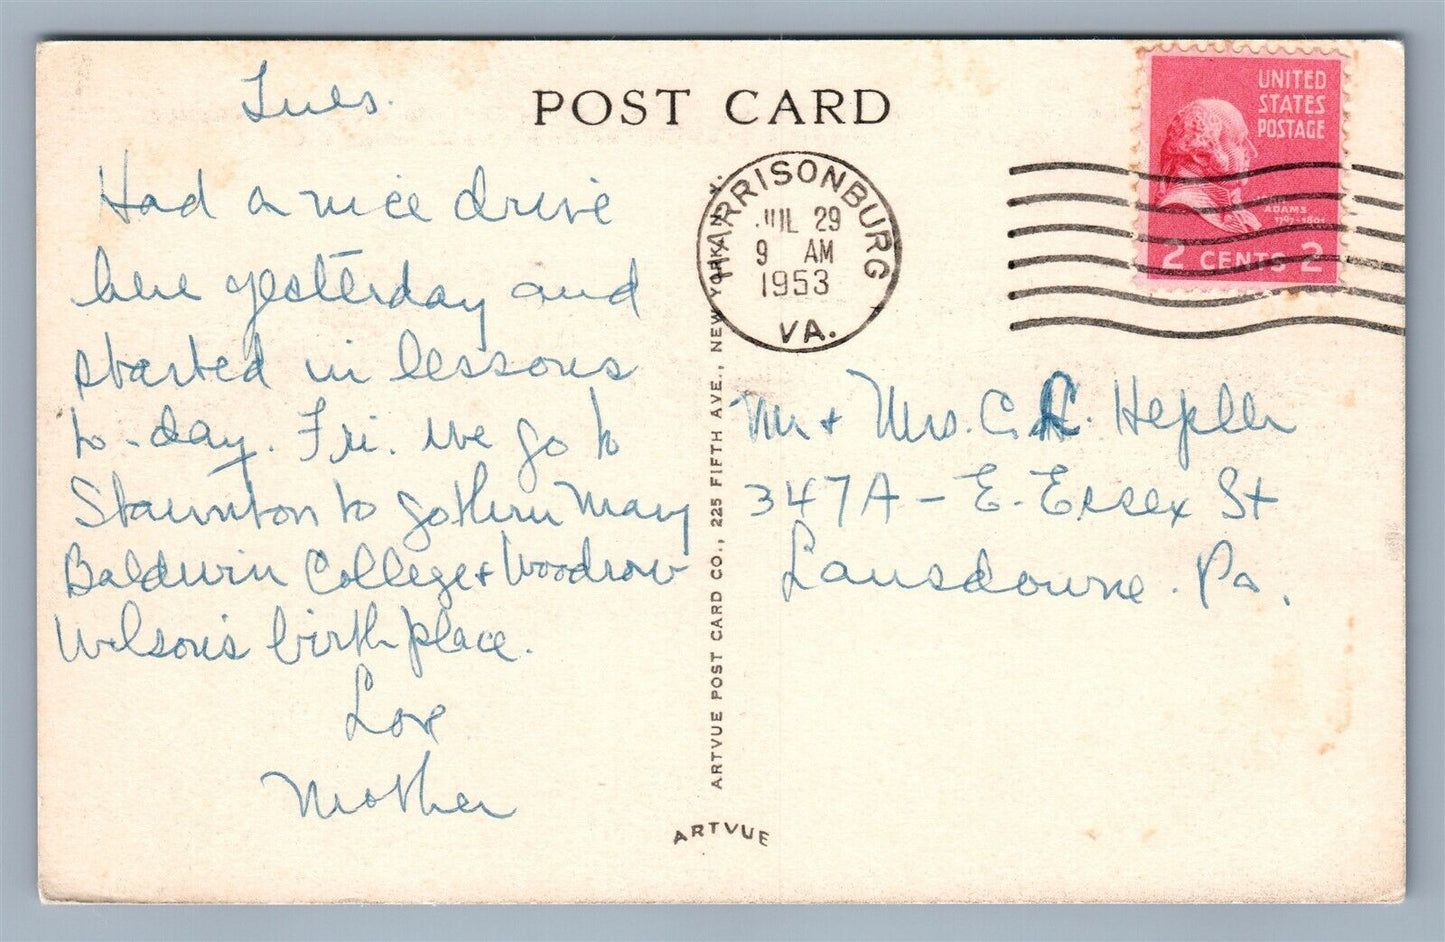 POST CARD
Tues.
Had a nice drive
here yesterday and
started in lessons
to-day. Fri. we go to
Staunton to go thru Mary
Baldwin College & Woodrow
Wilson's birthplace.
Love
Mother
HARRISONBURG
JUL 29
9 AM
1953
VA.
UNITED
STATES
POSTAGE
ADAMS
1797-1801
2 CENTS 2
Mr & Mrs. C. R. Hepler
347A - E. Essex St
Lansdowne. Pa.
ARTVUE POST CARD CO., 225 FIFTH AVE., NEW YORK, N. Y.
ARTVUE